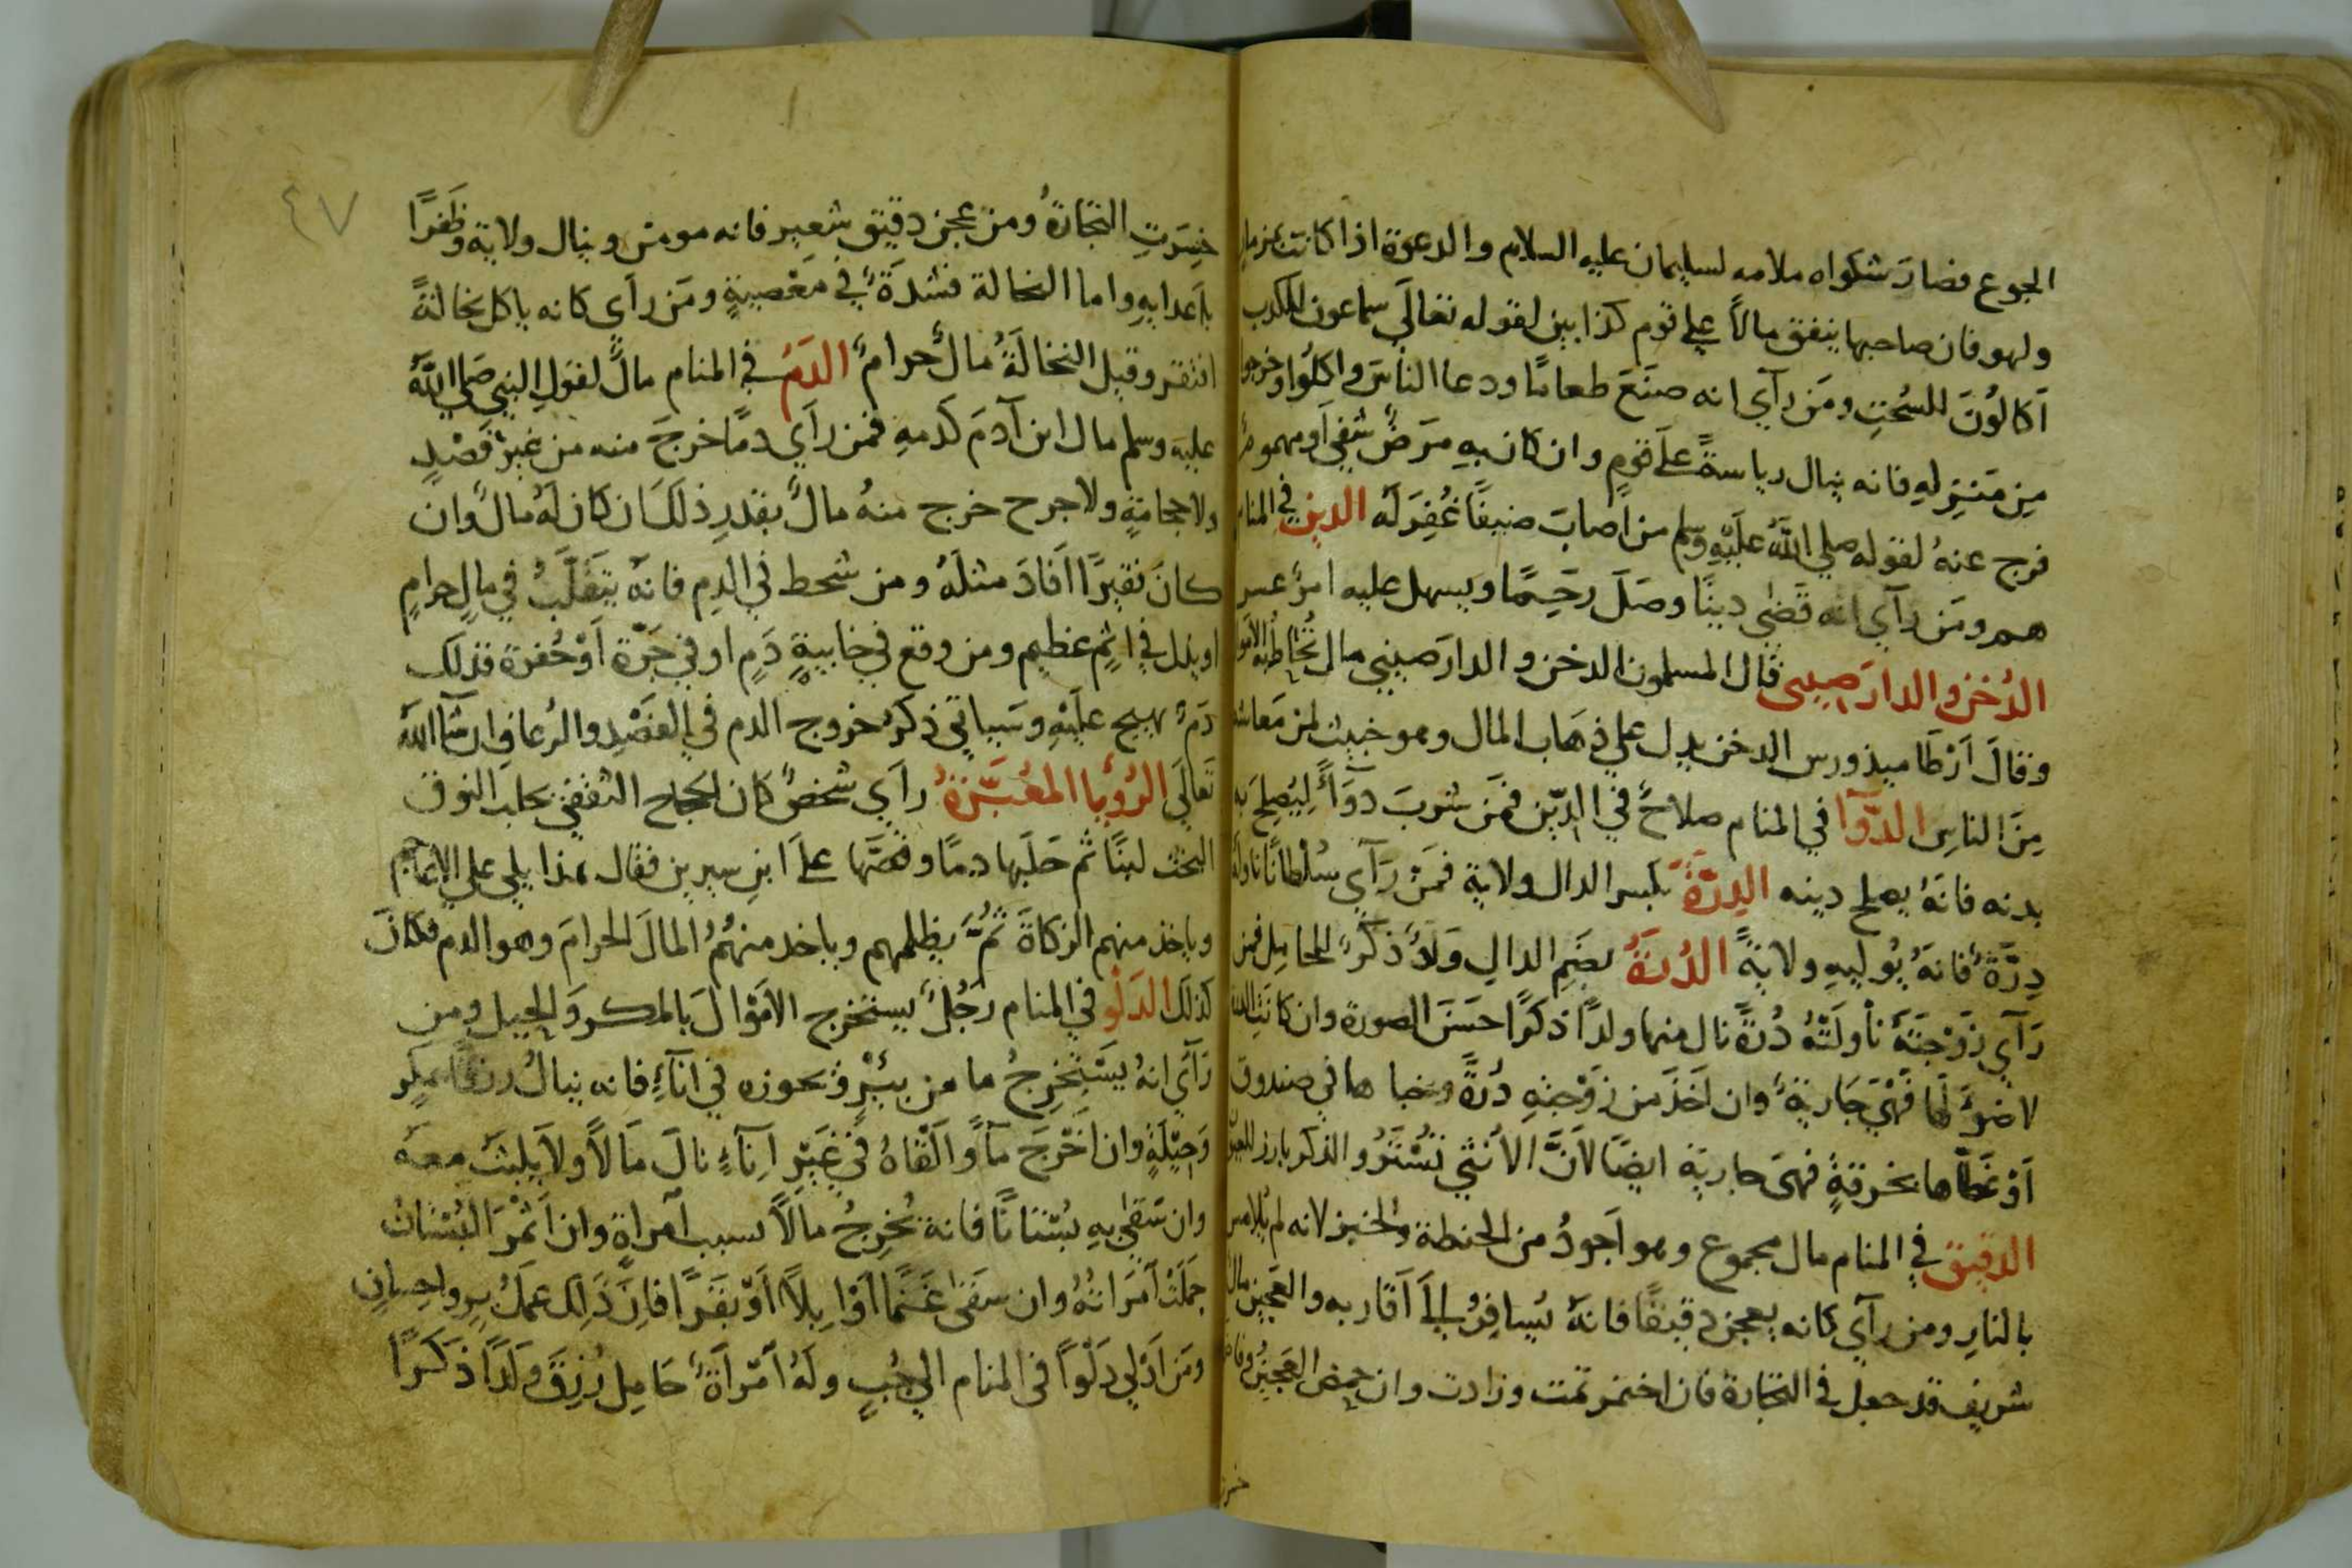 الجوع فصارَ شكواه ملامه لسليمان عليه السلام والدعوة اذا كانت بمزمار
ولهو فان صاحبها ينفق مالاً على قوم كذابين لقوله تعالَي سماعون للكذب
اَكالُونَ للسُحتِ ومَن رآي انه صنَعَ طعامًا ودعا الناسَ واكلُوا وخرجوا
مِن مَنزلِهِ فانه ينال رياسةً علَى قومٍ وان كان بهِ مرَضٌ شفي اَو مهموم
فرج عنهُ لقوله صلي اللهُ علَيْهِ وسلم من اَصابَ ضيفًا غُفِرَ لَه الدين في المنام
هم ومَن رآي انه قَضٰي دينًا وصَلَ رحَمًا ويسهل عليه امرٌ عسر
الدُخن والدارَصيني قال المسلمون الدخن والدارَصيني مال تُخاطبه
وقالَ اَرْطَاميذورس الدخن يدل علي ذهَاب المال وهو خبيث لمن مَعاشه
مِنَ الناسِ الدَّوآ في المنام صلاحٌ في الدّين فمَن شربَ دوَآءً لِيُصلِحَ به
بدنه فانهُ يصلح دينه الدِرَّةُ بكسر الدال ولاية فمَنْ رَآي سُلْطانًا ناوله
دِرَّةً فانهُ يُوليهِ ولايةً الدُرَةُ بضَمِ الدالِ وَلَدٌ ذكَرٌ للحامِل فمن
رَآي زَوْجتَهُ ناْولَتْهُ دُرةً نال منها ولدًا ذكرًا حسَنَ الصورة وان كانَت الدرة
لا ضوءَ لَها فَهْيَ جَاريَةٌ وان اَخذَ من زَوْجتِهِ دُرةً وخباها في صندوق
اَوْ غَطّاها بخرقةٍ فهى جارية ايضًا لاَنَّ الاُنثي تُسْتَرُ والذكر بارز للعين
الدقيق في المنام مال مجموع وهو اَجودُ من الحنطة والخبز لانه لم يُلامس
بالنارِ ومن رآي كانه يعجن دقيقًا فانهُ يُسافِرُ اِلَى اَقاربه والعَجينُ مالٌ
شريف قد حصل في التجارة فان اختمر تمت وزادت وان حمض العَجينُ
خسرت
٤٧
خسِرَتِ التجارةُ ومن عجن دقيق شعِيرٍ فانه مومن وينال ولاية وظَفرًا
باَعدايهِ واما النخالة فشدَةٌ في مَعْصيةٍ ومَن رآي كانه ياكل نخالةً
افتقر وقيل النخالَةُ مالٌ حرامٌ الدَمُ في المنام مالٌ لقولِ النبي صَلي اللهُ
عليه وسلم مال ابن آدمَ كَدَمهِ فمن رآي دمًا خرجَ منه من غير قَصْدٍ
ولا حجامةٍ ولا جرح خرج منهُ مالٌ بقَدرِ ذلكَ ان كان لَهُ مالٌ وان
كانَ فقيرًا اَفادَ مثلَهُ ومن شحط في الدمِ فانهُ يتقَلَّبُ في مالٍ حرامٍ
او يدخل في اثمٍ عظيم ومن وقع في خابيةٍ دَمٍ او في جَرّة اَوْ حُفرة فذلك
دَمٌ يهيج علَيْهِ وسَياتي ذكرُ خروج الدم في الفَصْدِ والرُعافِ ان شآ اللهُ
تَعالَي الرُؤيا المعَبَّرَةُ رآي شخصٌ كان الحجاج الثقفي يحلب النوق
البخت لبنًا ثم حَلَبَها دمًا وقصَّها علَى ابنِ سيرين فقال هذا يلي علي الاعاجم
وياخذ منهم الزكاةَ ثُمَّ يظلمهم وياخد منهُمُ المالَ الحرامَ وهو الدم فكانَ
كذلك الدَلْو في المنام رَجُلٌ يستخرج الاَمْوالَ بالمكر وَالحيل ومن
رَآي انهُ يَستَخرِجُ ما من بيْرٍ ويحوزه في اَنآءٍ فانه ينالُ رزقًا بمكرٍ
وَحيْلَةٍ وان اَخْرَجَ مآءً واَلْقاهُ في غَيْرِ اِنآءٍ نالَ مَالاً ولاَ يلبثُ معهُ
وان سَقٰي بهِ بُستانًا فانهُ يُخرِجُ مالاً بسبب آمراةٍ وان اَثْمَرَ البُستانُ
حمَلَتْ اَمَراتُهُ وان سقَٰي غَنَمًا اَوْ اِبلاً اَوْ بقَرًا فاِنَّ ذَلِكَ عمَلُ برٍ واحسانٍ
ومَن اَدْلي دَلْوًا في المنام الي جُبٍ ولَهُ اَمْرآةٌ حَامِل رُزقَ ولَدًا ذكَرًا